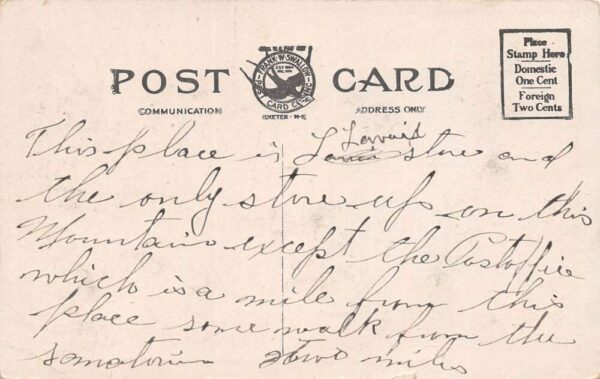 Place
Stamp Here
Domestic
One Cent
Foreign
Two Cents
POST CARD
FRANK·W·SWALLOW
CARD CO.
COMMUNICATION
EXETER - N-H
ADDRESS ONLY
This place is store and
the only store up on this
Mountain except the Postoffice
which is a mile from this
place some walk from the
sanatorium two miles